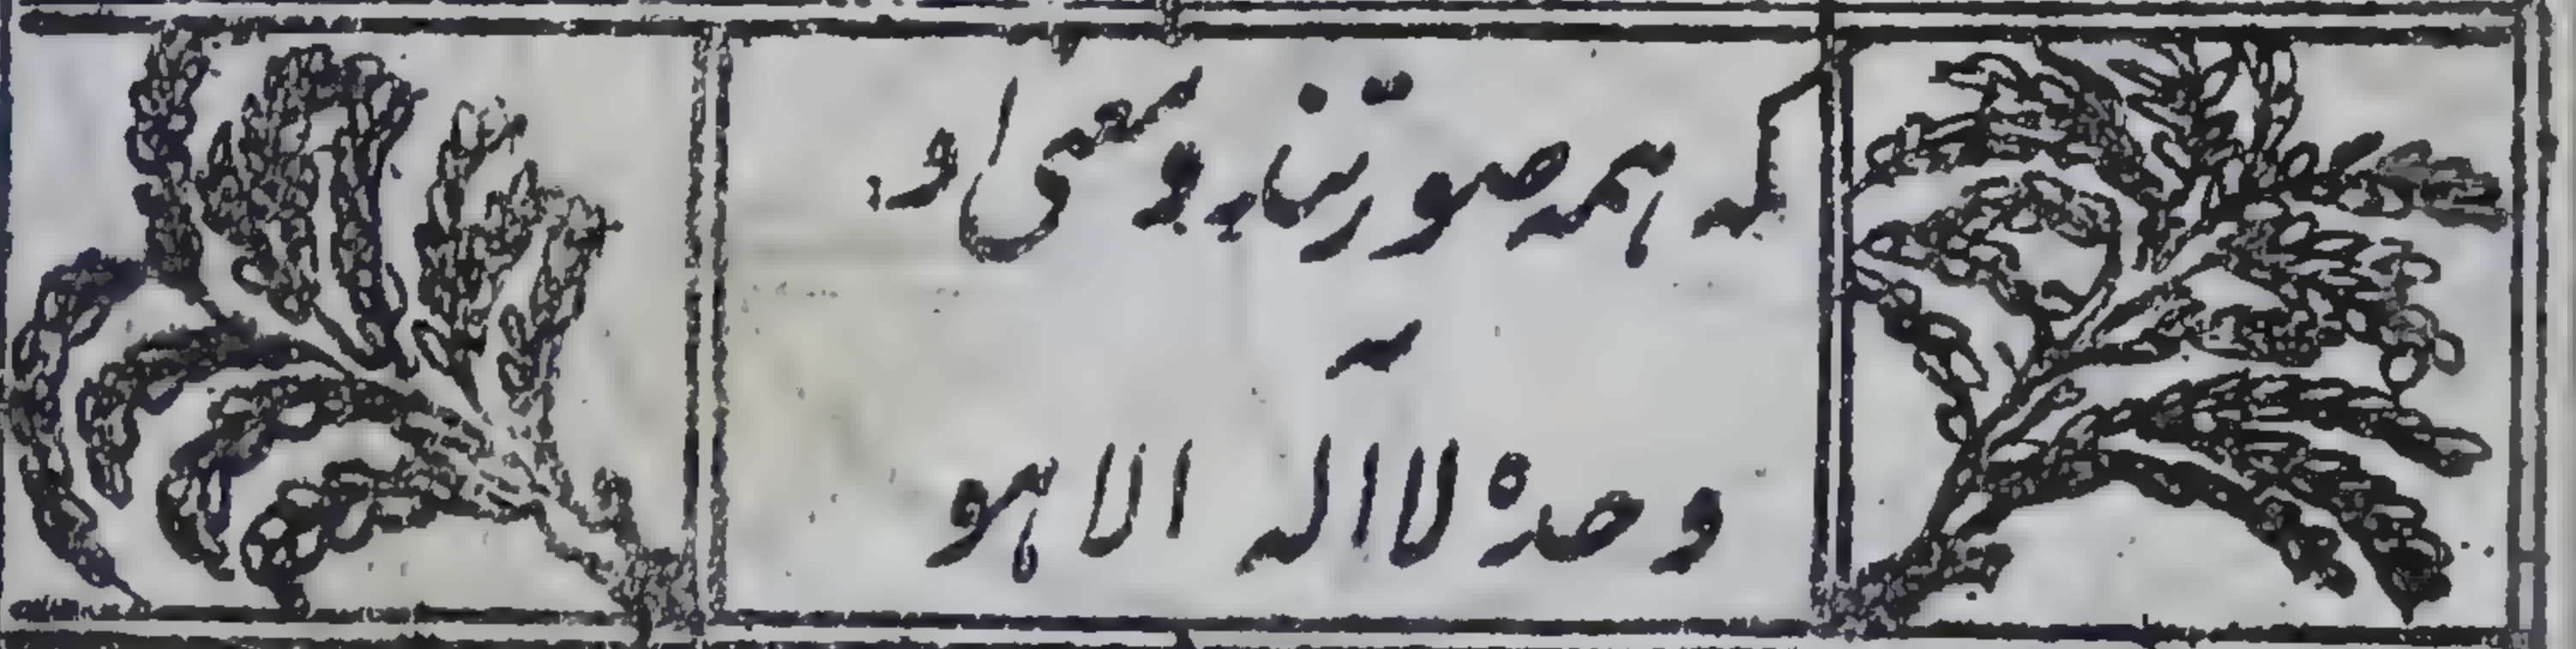 که همه صورتند و معنی او
وحدهٗ لا اله الا هو